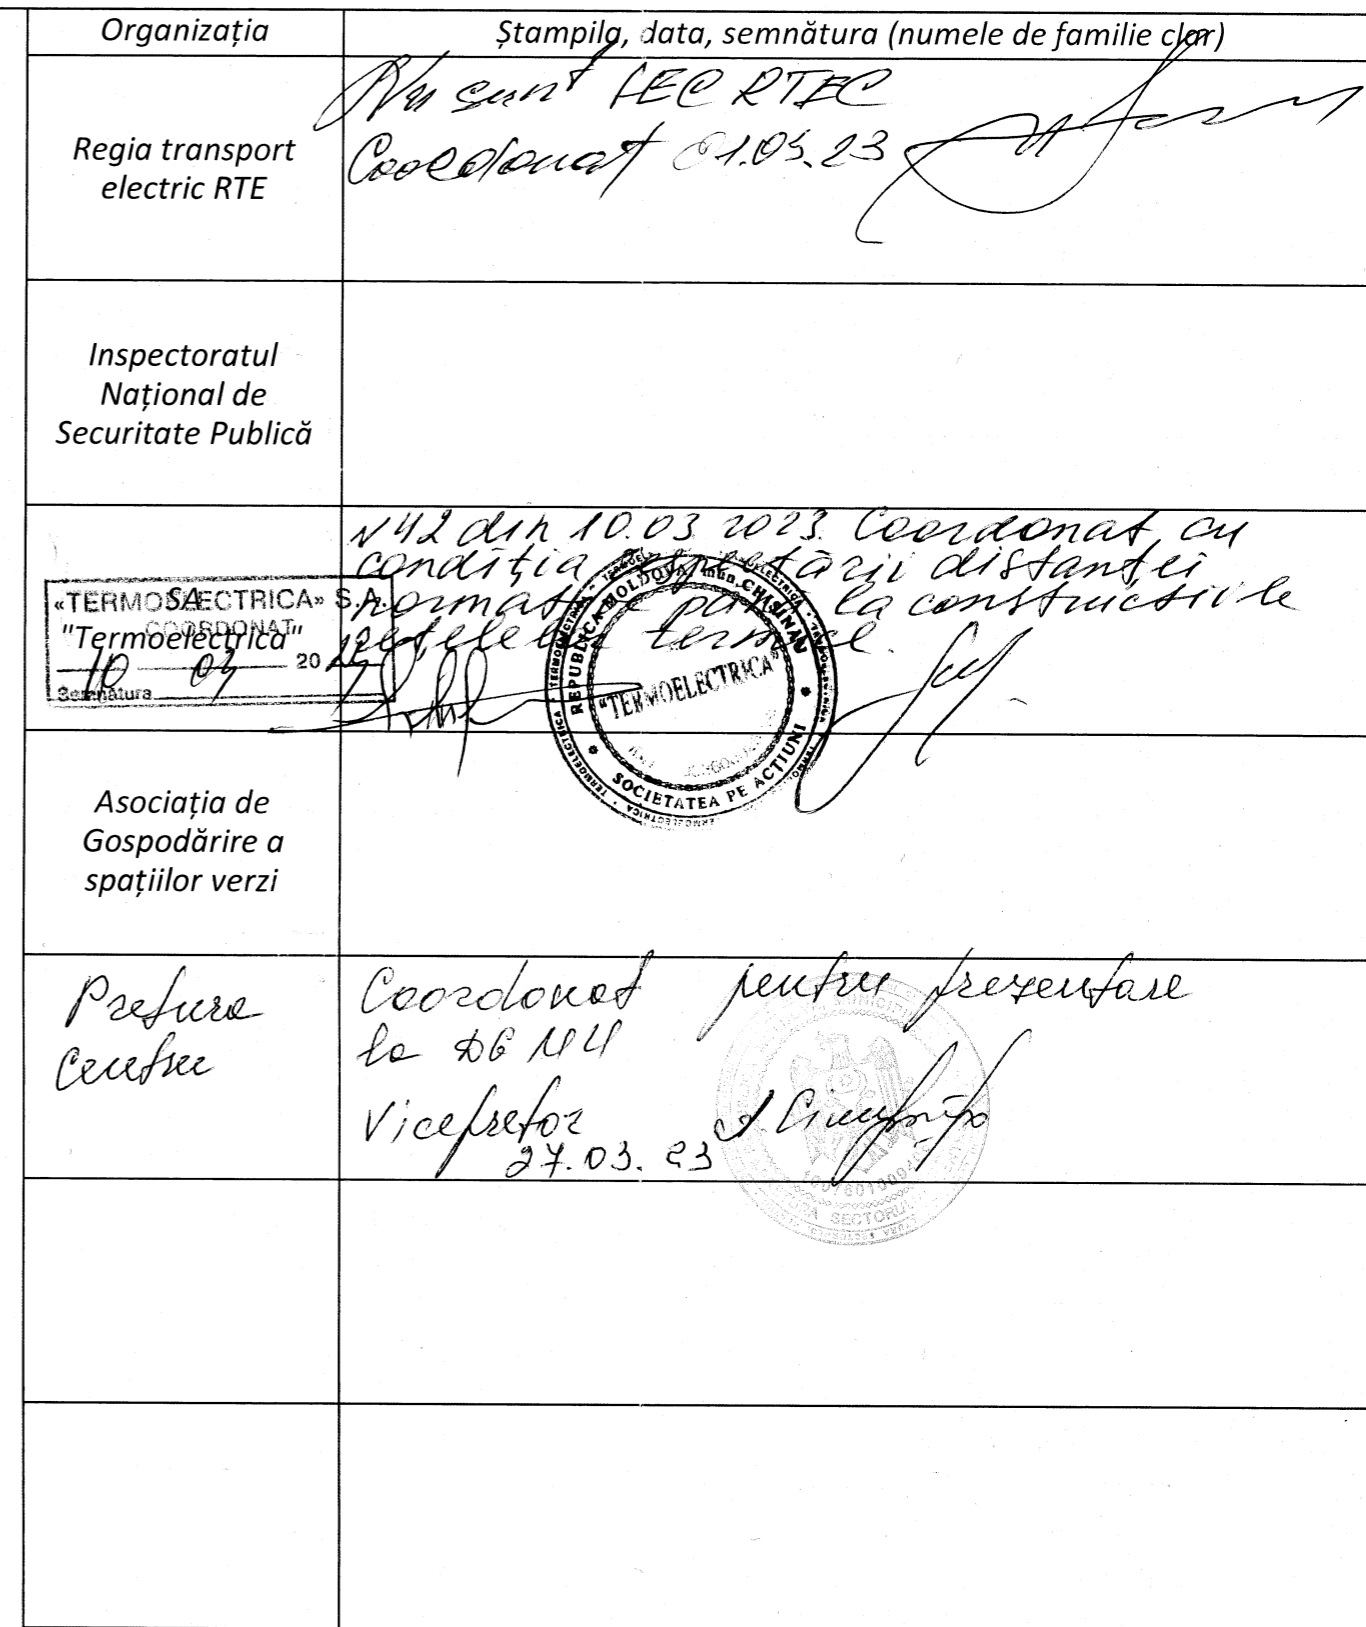 Organizația
Ștampila, data, semnătura (numele de familie clar)
Regia transport
electric RTE
Nu sunt LEC RTEC
Coordonat 01.03.23
Inspectoratul
Național de
Securitate Publică
SA
"Termoelectrica"
«TERMOELECTRICA» S.A.
COORDONAT
10 03 2023
Semnătura
N42 din 10.03.2023. Coordonat, cu
condiția respectării distanței
normative până la constructiile
rețelelor termice.
REPUBLICA MOLDOVA mun. CHIȘINĂU
"TERMOELECTRICA"
SOCIETATEA PE ACȚIUNI
Asociația de
Gospodărire a
spațiilor verzi
Pretura
Centru
Coordonat pentru prezentare
la DG
Vicepretor
27.03.23
SECTORULUI